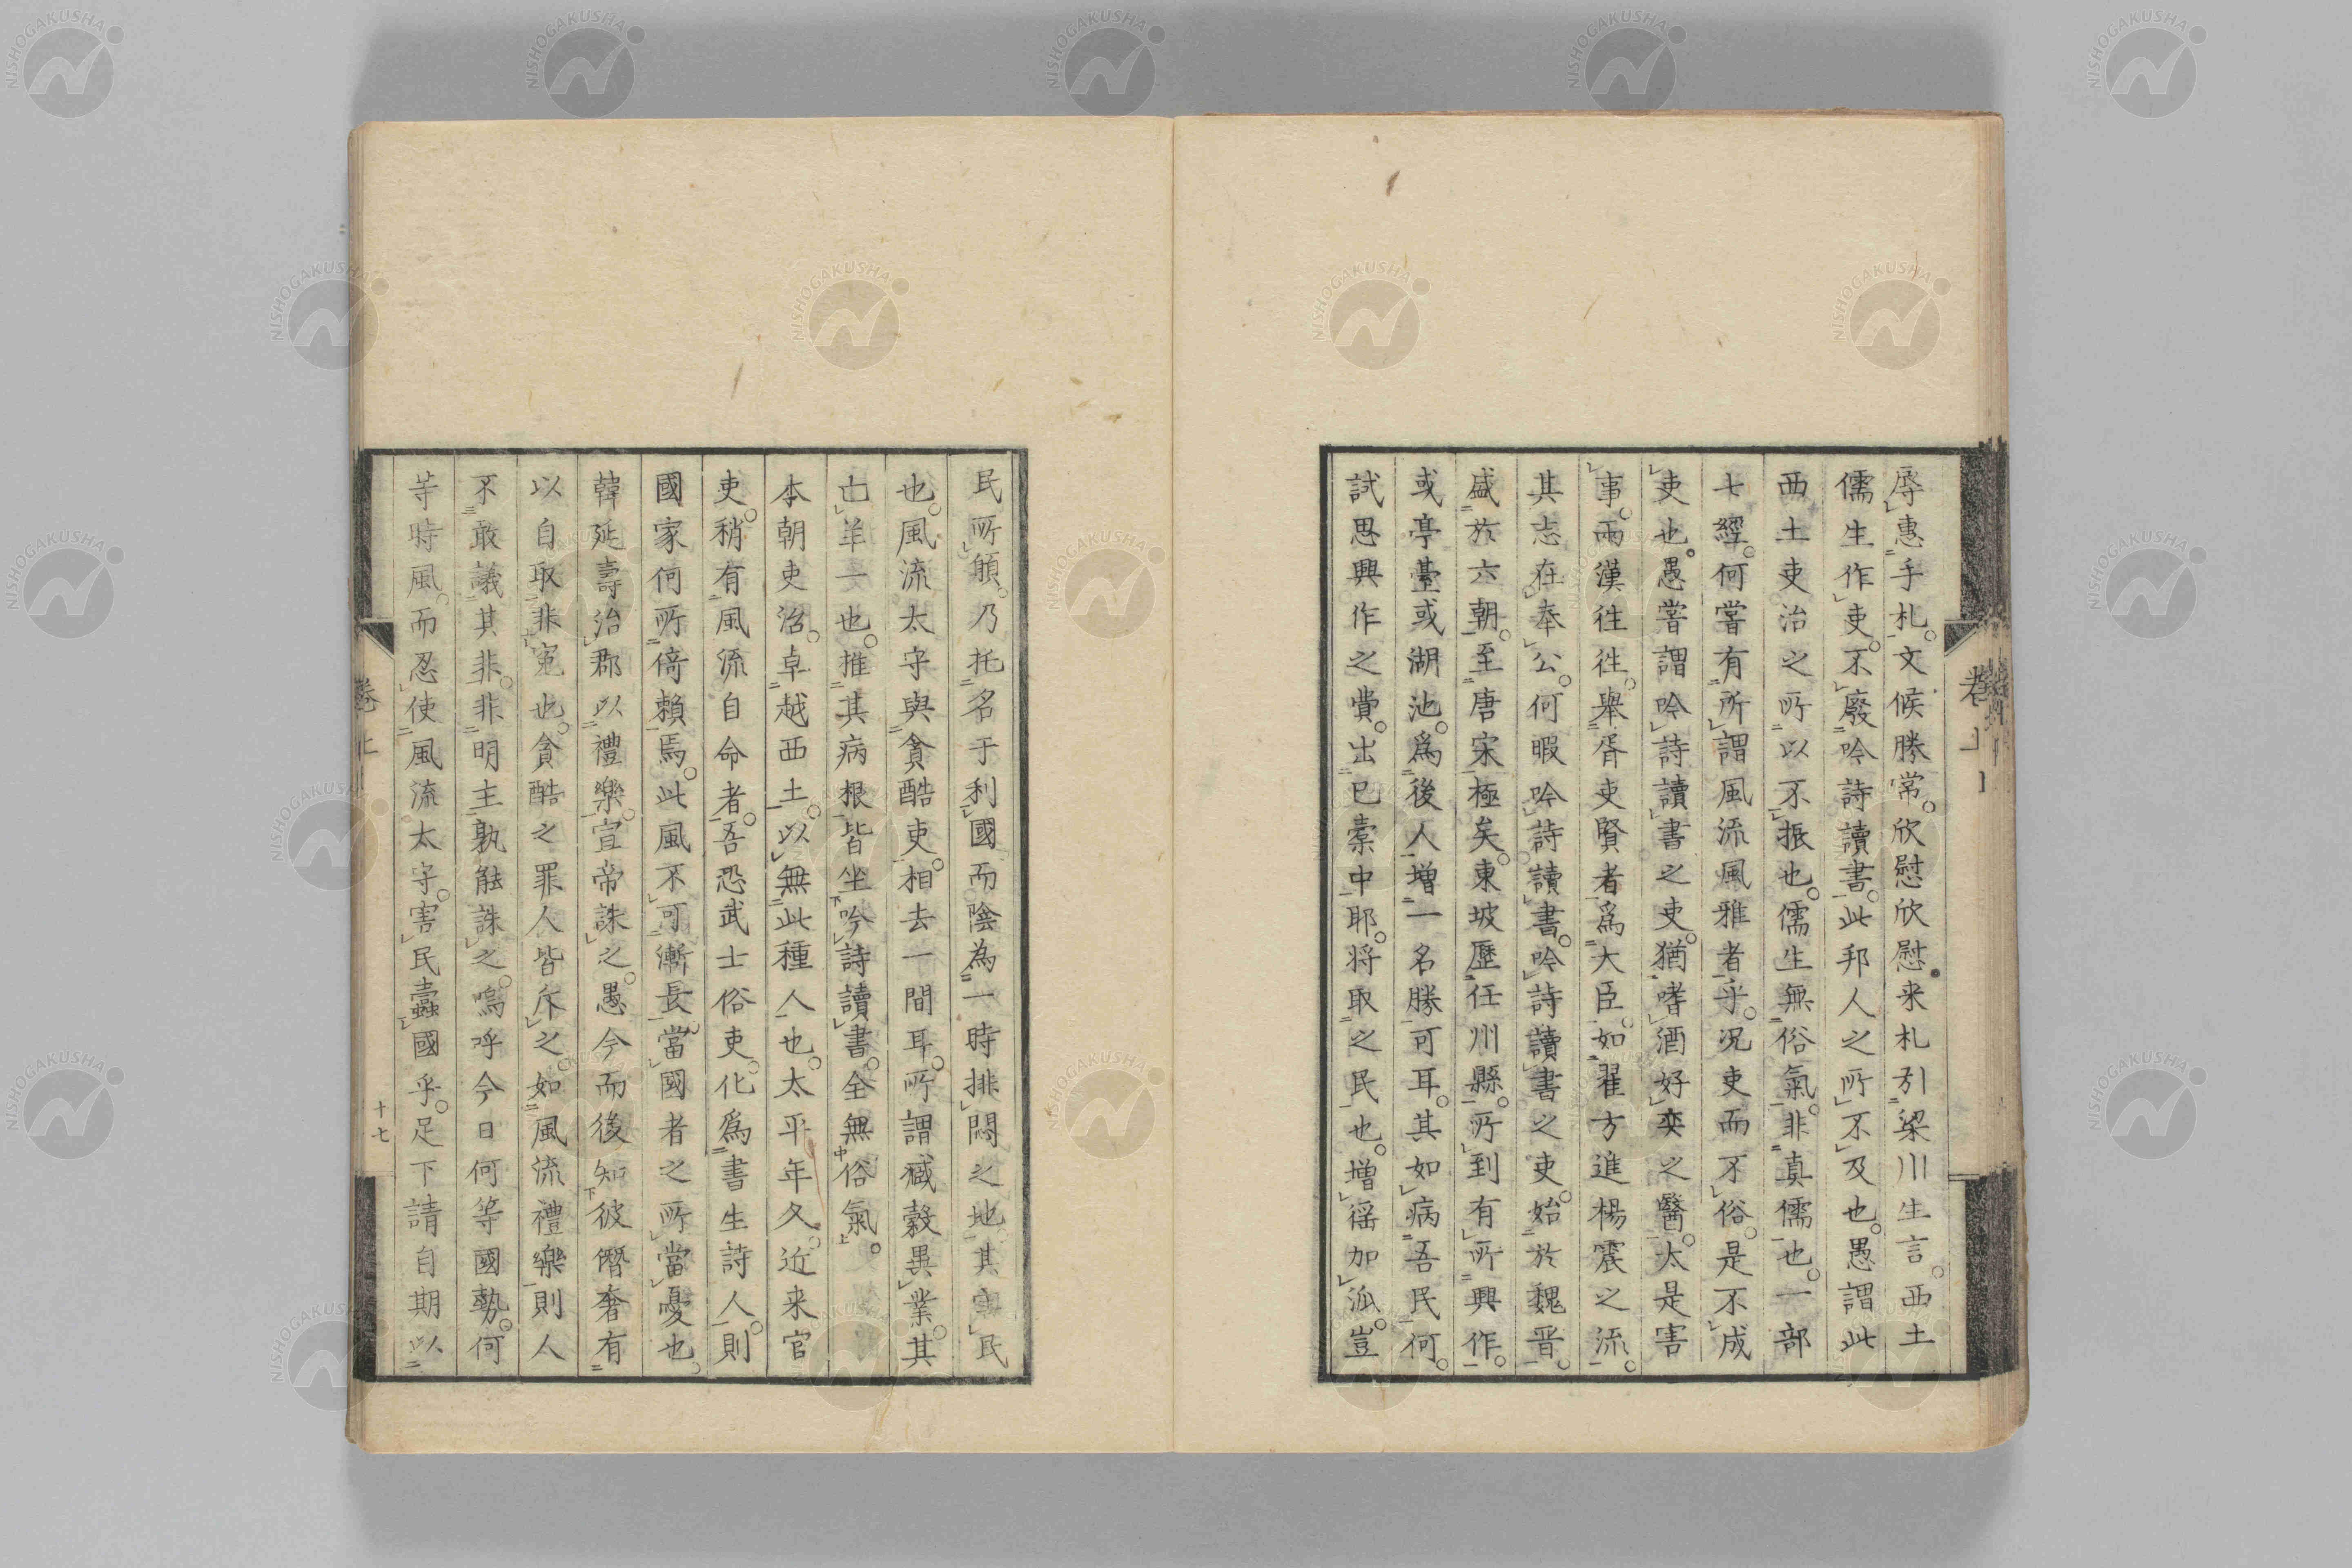 辱惠手札。文候勝常。欣慰欣慰。来札引梁川生言。西土
儒生作吏。不廢吟詩讀書。此邦人之所不及也。愚謂此
西土吏治之所以不振也。儒生無俗氣。非真儒也。一部
七經。何嘗有所謂風流風雅者乎。況吏而不俗。是不成
吏也。愚嘗謂吟詩讀書之吏。猶嗜酒好奕之醫。太是害
事。兩漢往往。舉胥吏賢者為大臣。如翟方進楊震之流。
其志在奉公。何暇吟詩讀書。吟詩讀書之吏。始於魏晋。
盛於六朝。至唐宋極矣。東坡歷任州縣。所到有所興作。
或亭臺或湖池。為後人增一名勝可耳。其如病吾民何。
試思興作之費。出已橐中耶。将取之民也。增徭加派。豈
民所願。乃托名于利國而陰為一時排悶之地。其害民
也。風流太守與貪酷吏。相去一間耳。所謂臧穀異業。其
亡羊一也。推其病根皆坐吟詩讀書。全無俗氣。
本朝吏治。卓越西土。以無此種人也。太平年久。近来官
吏。稍有風流自命者。吾恐武士俗吏。化為書生詩人。則
國家何所倚賴焉。此風不可漸長。當國者之所當憂也。
韓延壽治郡以禮樂。宣帝誅之。愚今而後知彼僭奢有
以自取非寃也。貪酷之罪人皆斥之如風流禮樂則人
不敢議其非。非明主孰能誅之。嗚呼今日何等國勢。何
等時風。而忍使風流太守。害民蠹國乎。足下請自期以
卷上
十七
卷上
NISHOGAKUSHA